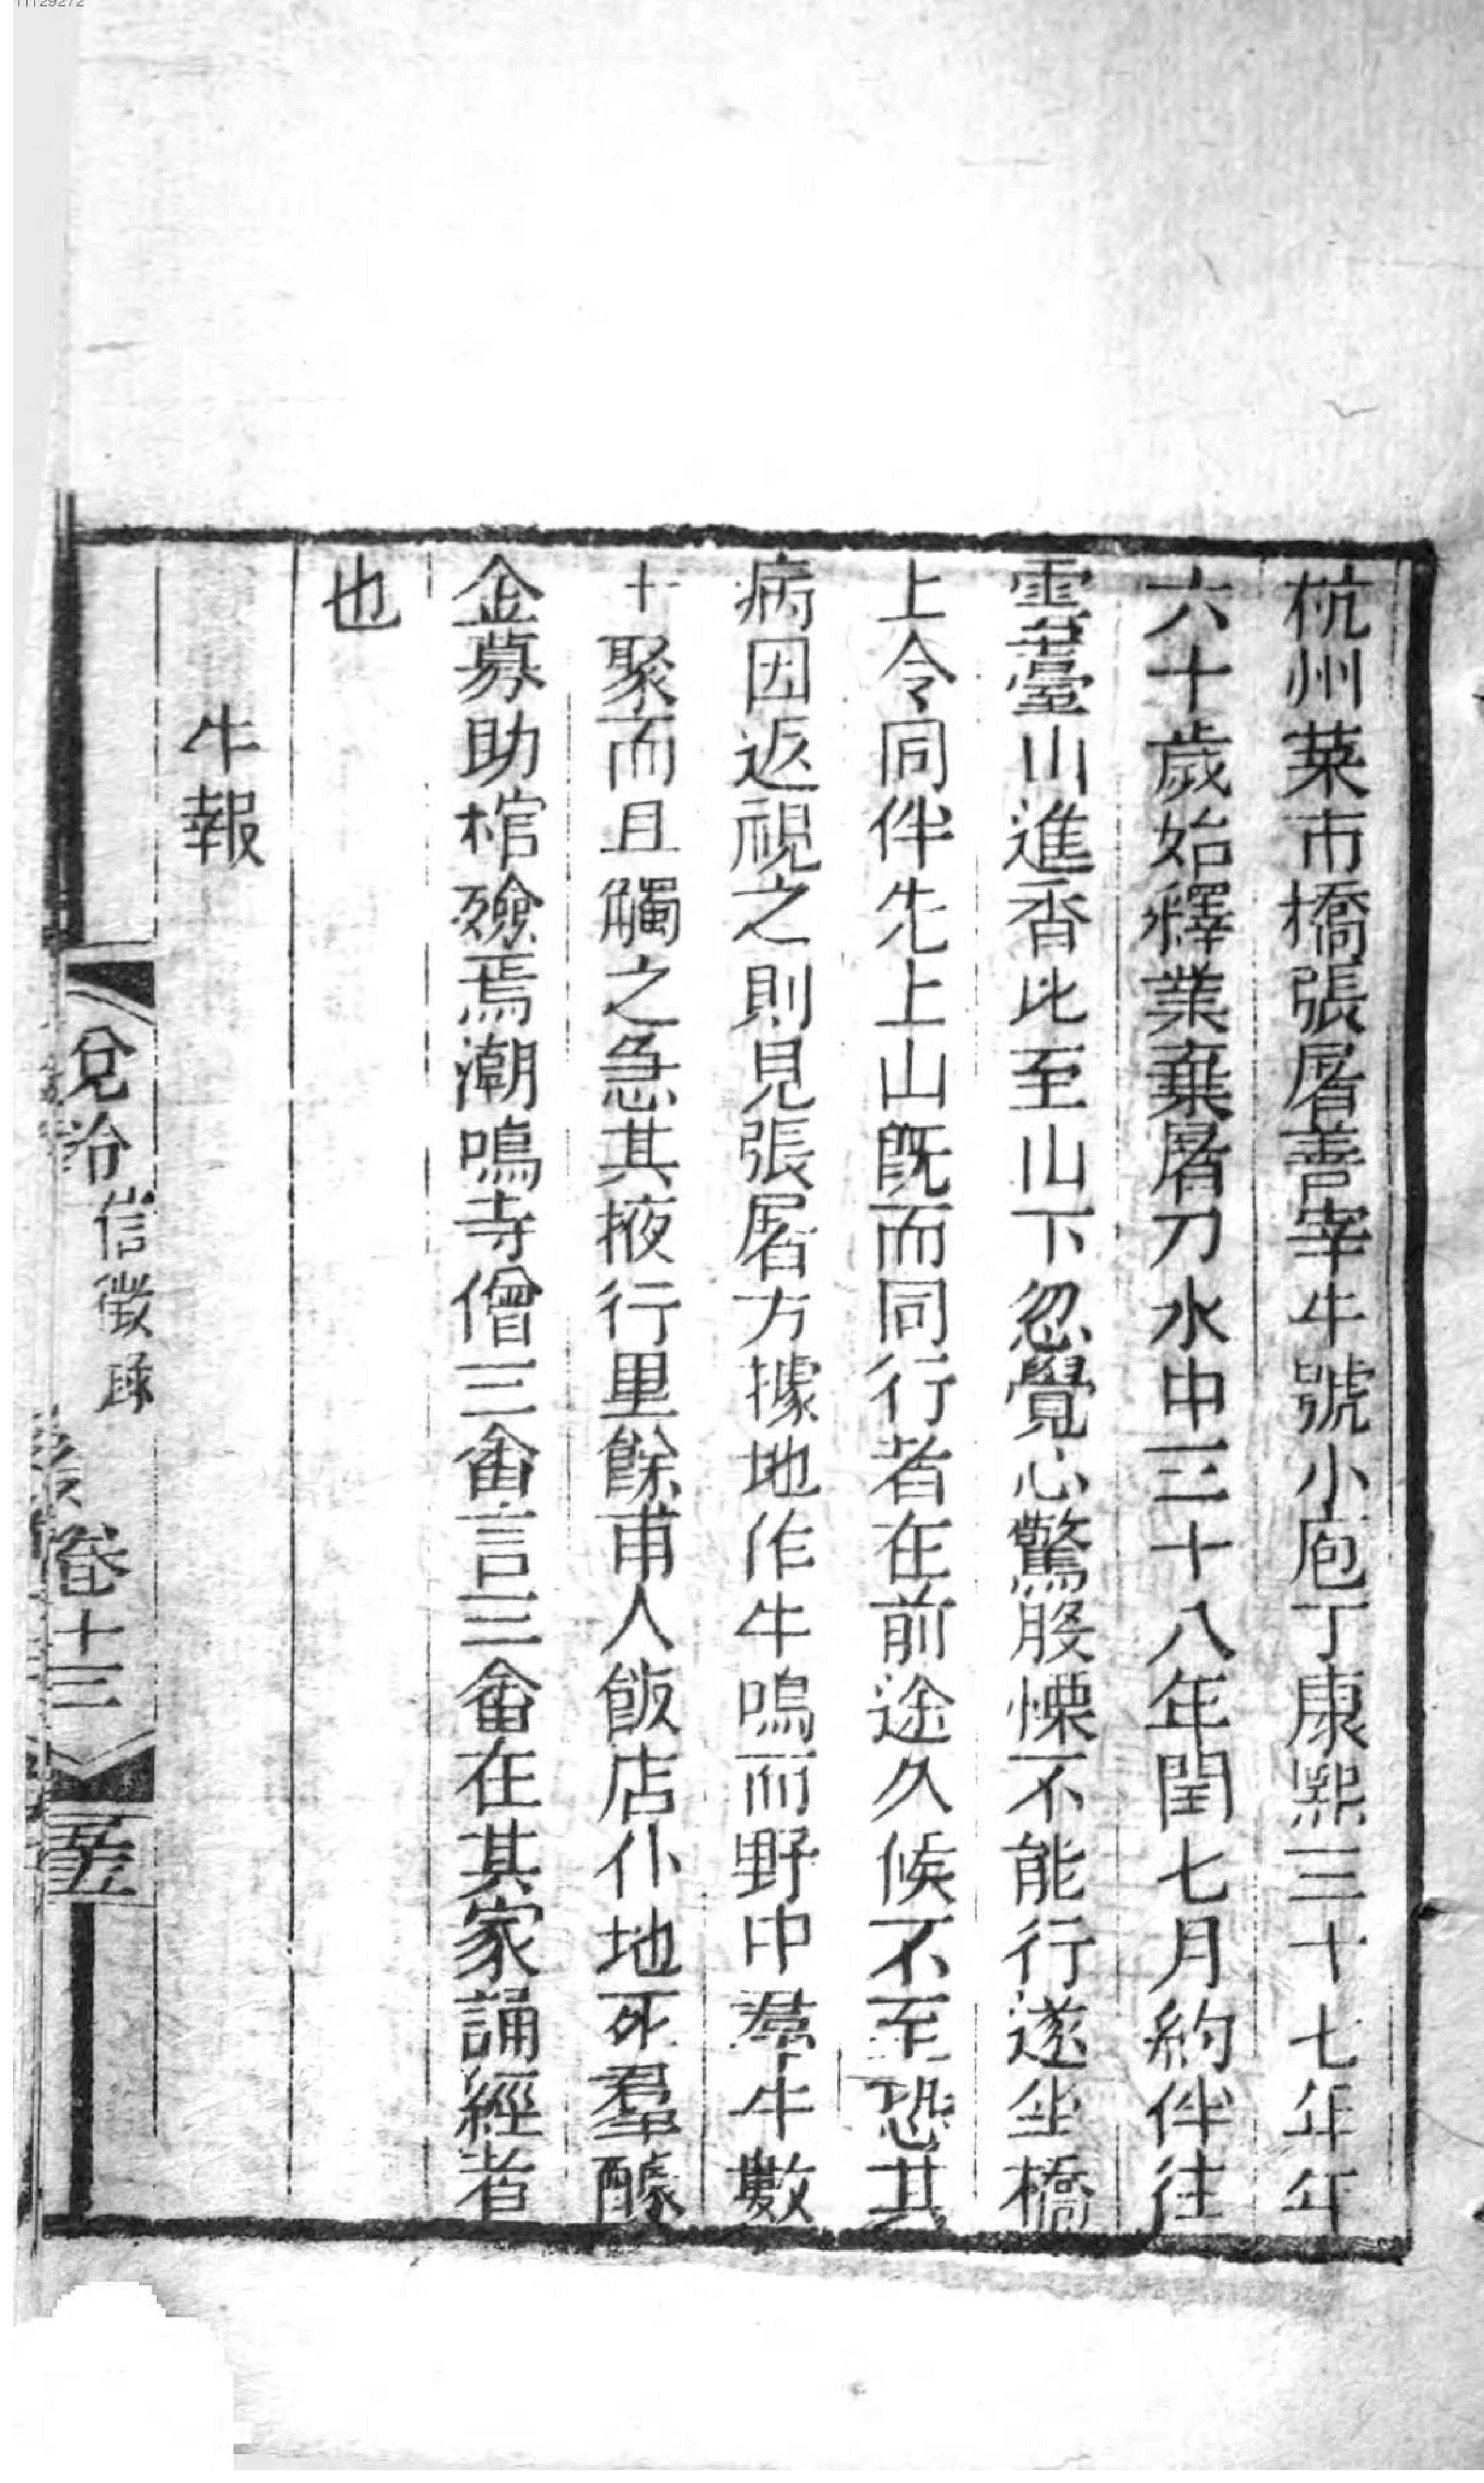 杭州菜市橋張屠善宰牛號小庖丁康熙三十七年年
六十歲始釋業棄屠刀水中三十八年閏七月約伴往
雲臺山進香比至山下忽覺心驚股慄不能行遂坐橋
上令同伴先上山既而同行者在前途久候不至恐其
病因返視之則見張屠方據地作牛鳴而野中羣牛數
十聚而且觸之急其掖行里餘甫人飯店仆地死羣醵
金募助棺殮焉潮鳴寺僧三畬言三畬在其家誦經者
也
牛報
說鈴
信徵錄
卷十三
11129272